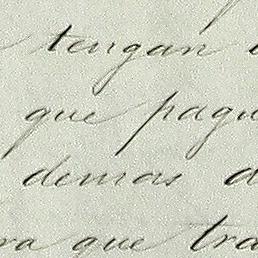 tengan
que pagu
demas d
ra que tra